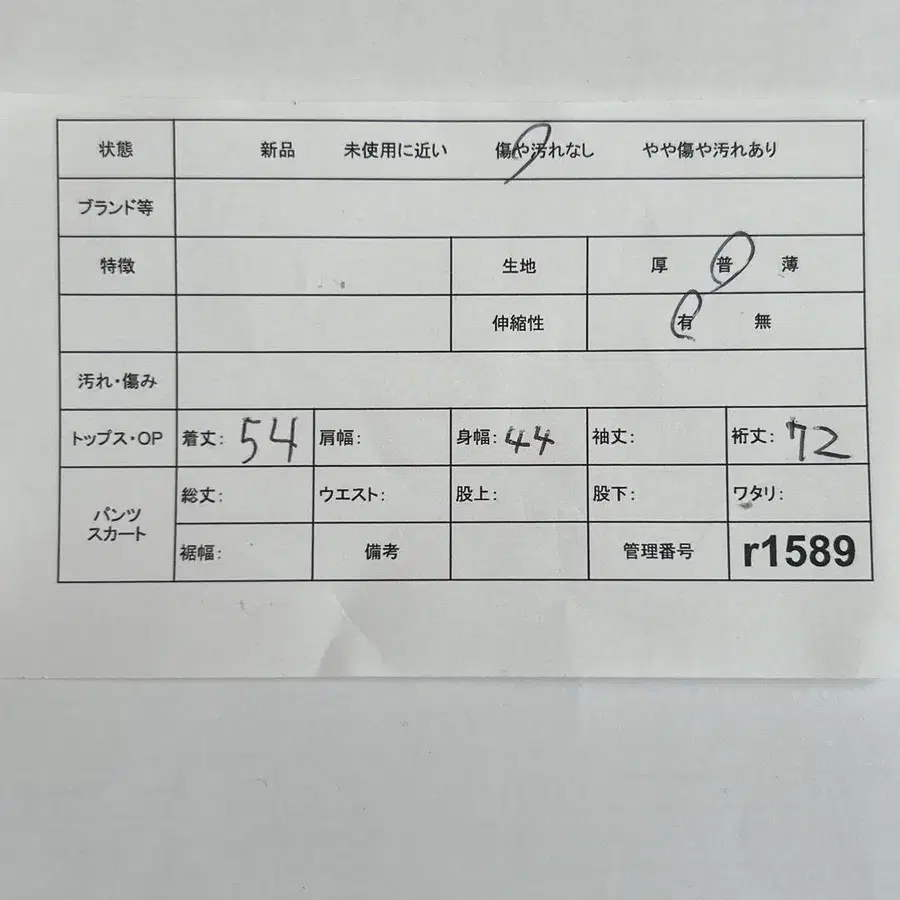 状態 新品 未使用に近い 傷や汚れなし やや傷や汚れあり
ブランド等
特徴 生地 厚 普 薄
伸縮性 有 無
汚れ・傷み
トップス・OP 着丈: 54 肩幅: 身幅: 44 袖丈: 裄丈: 72
パンツ
スカート
総丈: ウエスト: 股上: 股下: ワタリ:
裾幅: 備考 管理番号 r1589